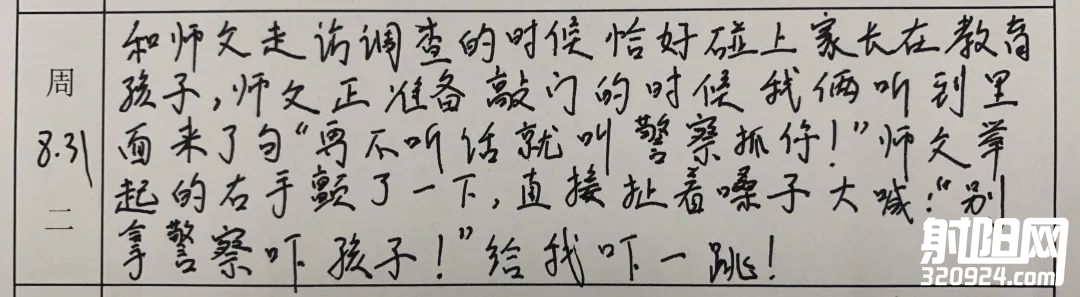 周
8.31
二
和师父走访调查的时候恰好碰上家长在教育
孩子,师父正准备敲门的时候我俩听到里
面来了句“再不听话就叫警察抓你!”师父举
起的右手颤了一下,直接扯着嗓子大喊:“别
拿警察吓孩子!”给我吓一跳!
射阳网
320924.com